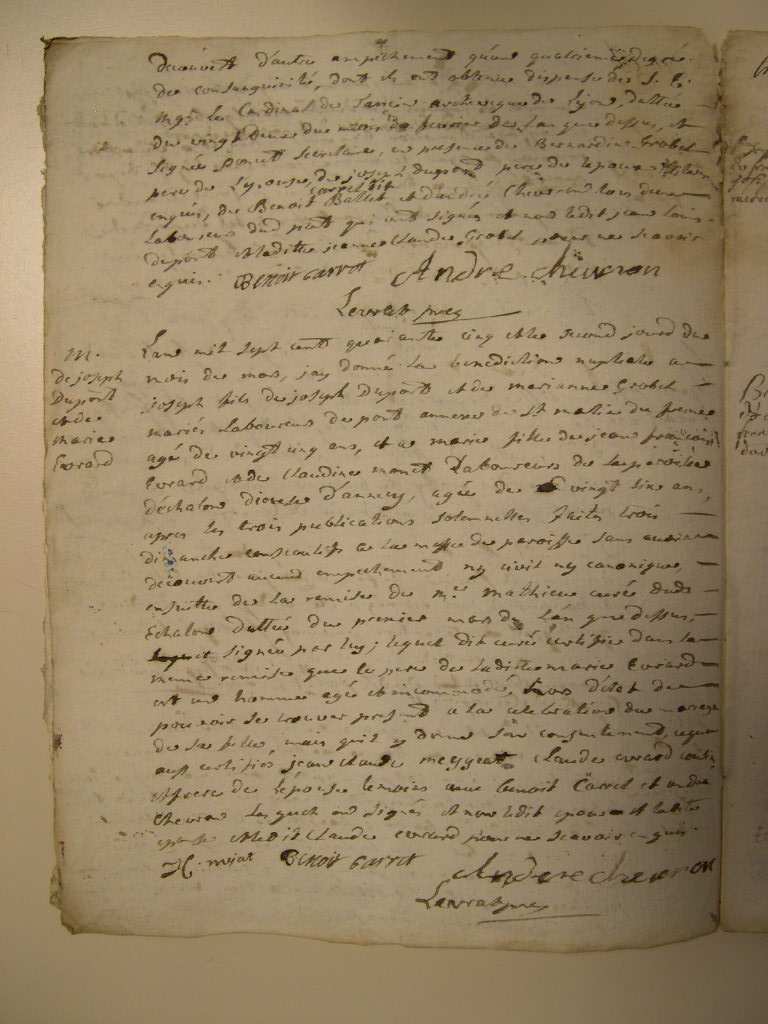 découvert d'autre empechement qu'une quatrieme degré
de consanguinité, dont ils ont obtenue dispense de S. E.
Mgr le Cardinal de archeveque de Lyon, dattée
du vingt deux du mois de de l'an que dessus, et
signée secretaire, en presence de Bernardin Grobel
pere de l'epouse, de joseph Dupont pere de l'epoux
enquis, de Benoit Ballet, et d'andré Cheveron tous deux
laboureurs dud pont qui ont signés et non ledit jean louis
dupont et laditte jeanne Claude Grobel pour ne scavoir
enquis. Benoit Garrot André Cheveron
Levrat
M.
de joseph
Dupont
et de
marie
Evrard
L'ane mil sept cent quarante cinq et le second jour du
mois de mars, j'ay donné la benediction nuptiale a
joseph fils de joseph Dupont et de marianne Grobel
mariés Laboureurs de pont annexe de St matin du frene
agé de vingt cinq ans, et a marie fille de jean françois
Evrard et de Claudine monet Laboureurs de la paroisse
d'échalon diocese d'annecy, agée de vingt six ans,
apres les trois publications solemnelles faites trois
dimanche consecutifs a la messe de paroisse sans avoir
découvert aucun empechement ny civil ny canonique,
ensuitte de la remise de mr. mathieu curé dud
Echalon dattée du premier mars de l'an que dessus,
signée par luy; lequel dit curé certifie dans la
meme remise que le pere de laditte marie Evrard
est un homme agé et incommodé, hors d'état de
pouvoir se trouver present a la celebration du mariage
de sa fille, mais quil y donne son consentement, ce que
aussi certifies jean claude meygeat claude evrard
et frere de l'épouse temoins avec benoit Carrot et andre
Chevron lesquels ont signés et non ledit epoux et laditte
epouse et ledit Claude evrard pour ne scavoir enquis.
mejat Benoit Garrot
Andre cheuron
Levrat